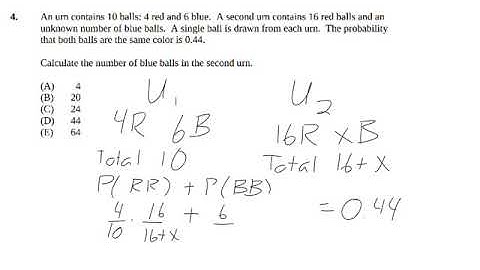 4. An urn contains 10 balls: 4 red and 6 blue. A second urn contains 16 red balls and an
unknown number of blue balls. A single ball is drawn from each urn. The probability
that both balls are the same color is 0.44.
Calculate the number of blue balls in the second urn.
(A) 4
(B) 20
(C) 24
(D) 44
(E) 64
U1 U2
4R 6B 16R xB
Total 10 Total 16+x
P(RR) + P(BB)
4/10 · 16/16+x + 6/ = 0.44